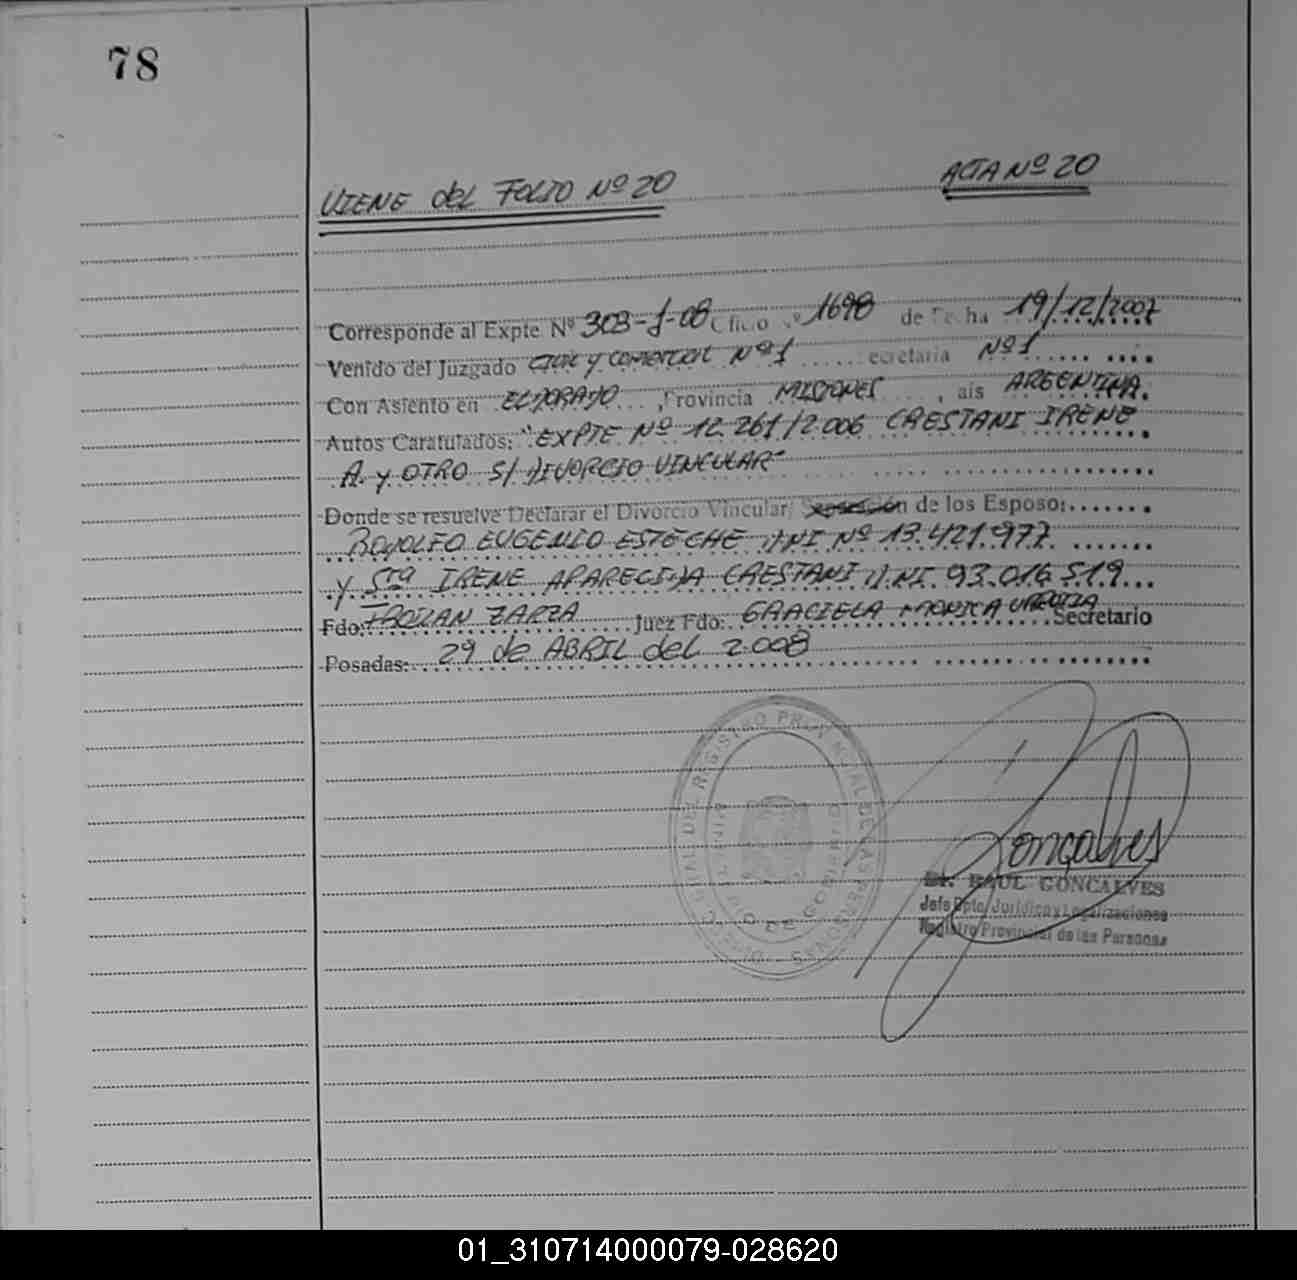 78
VIENE del FOLIO Nº 20
ACTA Nº 20
Corresponde al Expte Nº 303-J-08 Oficio Nº 1698 de Fecha 19/12/2007
Venido del Juzgado Civil y Comercial Nº 1 ecretaria Nº 1
Con Asiento en ELDORADO, Provincia MISIONES, ais ARGENTINA.
Autos Caratulados: "EXPTE Nº 12.261/2.006 CRESTANI IRENE
A. y OTRO S/ DIVORCIO VINCULAR"
Donde se resuelve Declarar el Divorcio Vincular/ Separación de los Esposo:
RODOLFO EUGENIO ESTECHE DNI Nº 13.421.977
y Sra IRENE APARECIDA CRESTANI D.NI. 93.016.519
Fdo: FROILAN ZARZA Juez Fdo: GRACIELA MONICA URRUTIA Secretario
Posadas: 29 de ABRIL del 2.008
REGISTRO PROVINCIAL DE LAS PERSONAS
Goncalves
Dr. RAUL GONCALVES
Jefe Dpto. Jurídico y Legalizaciones
Registro Provincial de las Personas
01_310714000079-028620